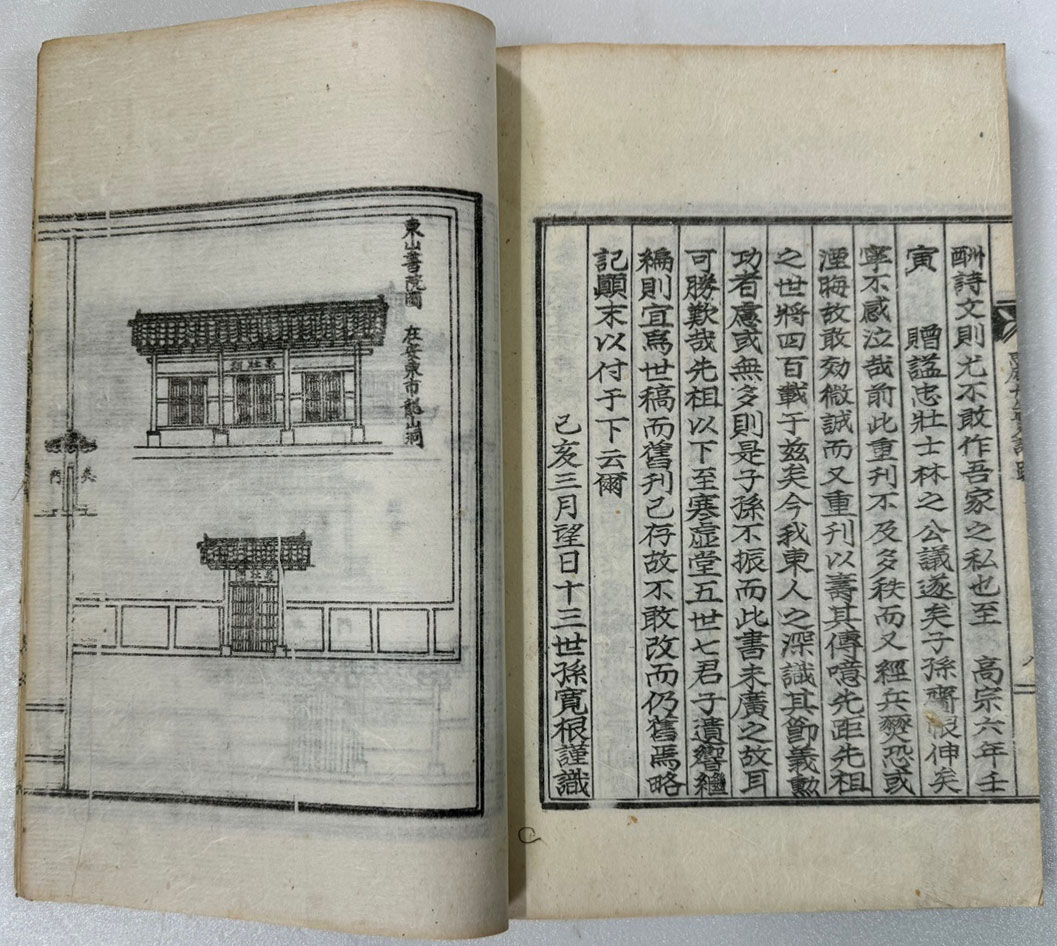 酬詩文則尤不敢作吾家之私也至 高宗六年壬
寅 贈諡忠壯士林之公議遂矣子孫齎恨伸矣
寧不感泣哉前此重刊不及多秩而又經兵燹恐或
湮晦故敢效微誠而又重刊以壽其傳噫先距先祖
之世將四百載于玆矣今我東人之深識其節義勳
功者慮或無多則是子孫不振而此書未廣之故耳
可勝歎哉先祖以下至寒虛堂五世七君子遺響繼
編則宜爲世稿而舊刊已存故不敢改而仍舊焉略
記顚末以付于下云爾
己亥三月望日十三世孫寬根謹識
東山書院圖 在安東市龍山洞
忠壯祠
門